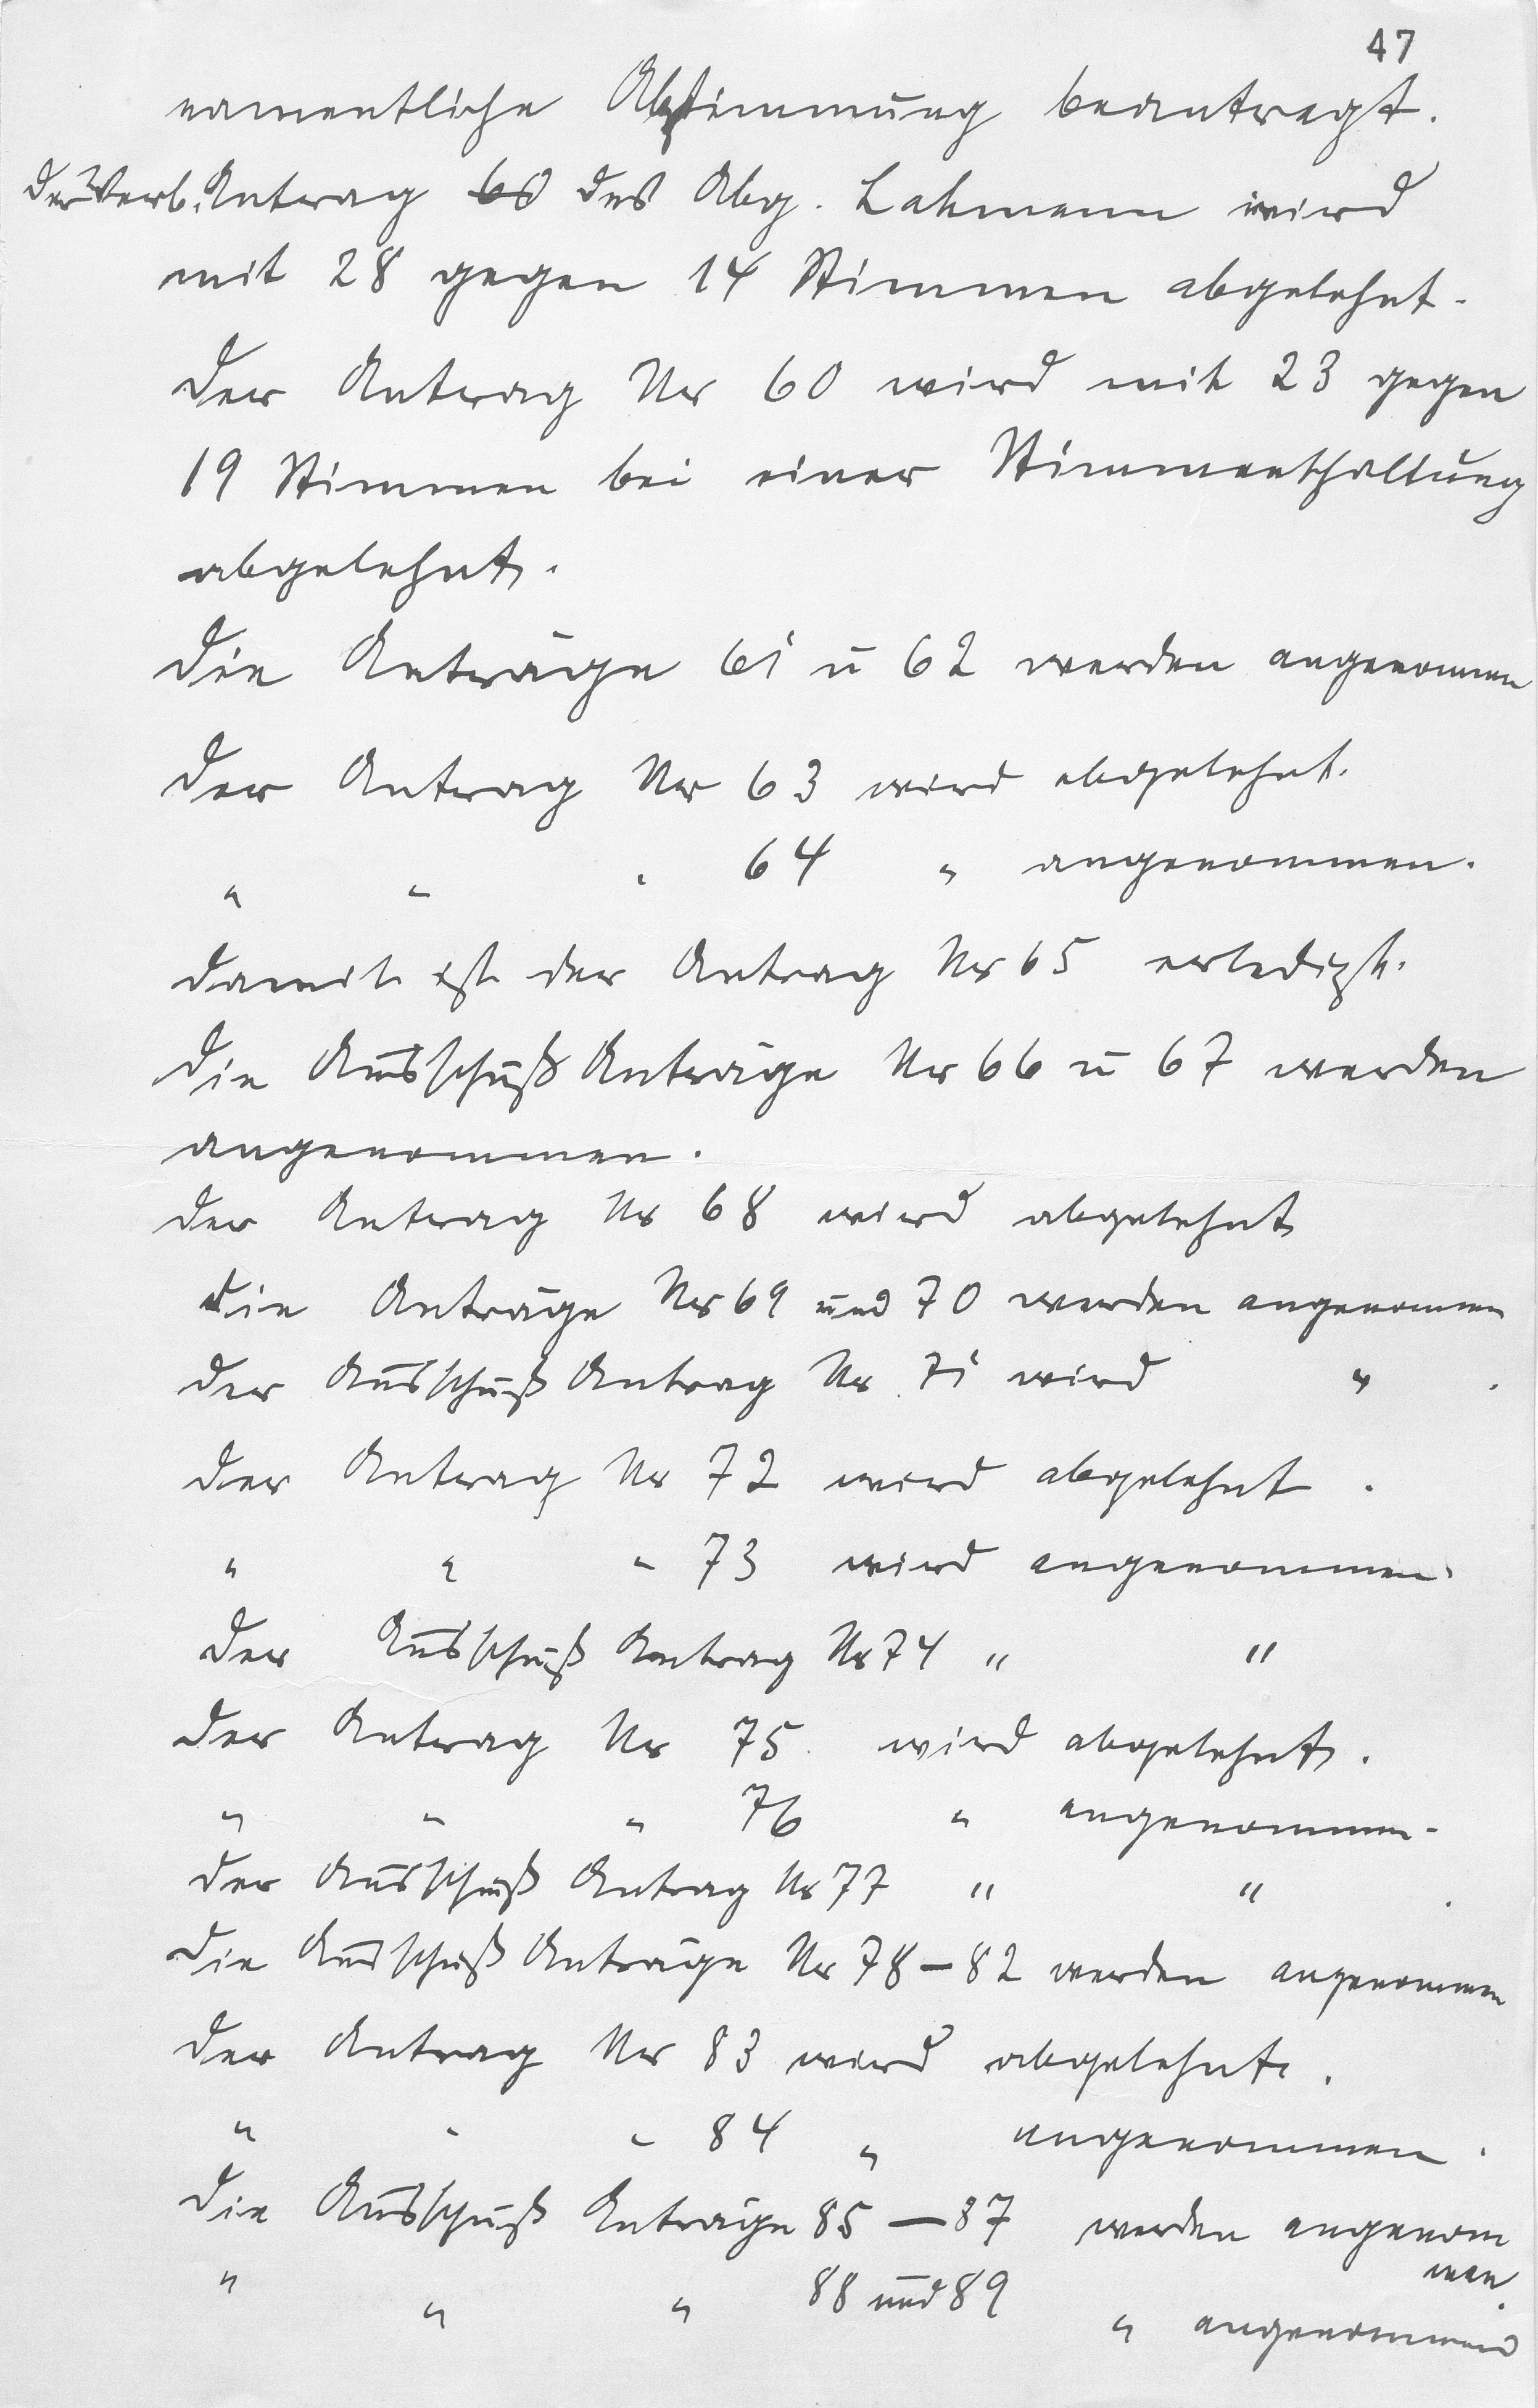 47
namentliche Abstimmung beantragt.
Der Verb. Antrag des Abg. Lahmann wird
mit 28 gegen 14 Stimmen abgelehnt.
Der Antrag Nr 60 wird mit 23 gegen
19 Stimmen bei einer Stimmenthaltung
abgelehnt.
Die Anträge 61 u 62 werden angenommen
Der Antrag Nr 63 wird abgelehnt.
" " " 64 " angenommen.
Damit ist der Antrag Nr 65 erledigt.
Die Ausschuß Anträge Nr 66 u 67 werden
angenommen.
Der Antrag Nr 68 wird abgelehnt
Die Anträge Nr 69 und 70 werden angenommen
Der Ausschuß Antrag Nr 71 wird " .
Der Antrag Nr 72 wird abgelehnt .
" " " 73 wird angenommen.
Der Ausschuß Antrag Nr 74 " "
Der Antrag Nr 75 wird abgelehnt.
" " " 76 " angenommen.
Der Ausschuß Antrag Nr 77 " " .
Die Ausschuß Anträge Nr 78-82 werden angenommen
Der Antrag Nr 83 wird abgelehnt.
" " " 84 " angenommen.
Die Ausschuß Anträge 85-87 werden angenom
men.
" " " 88 und 89 " angenommen